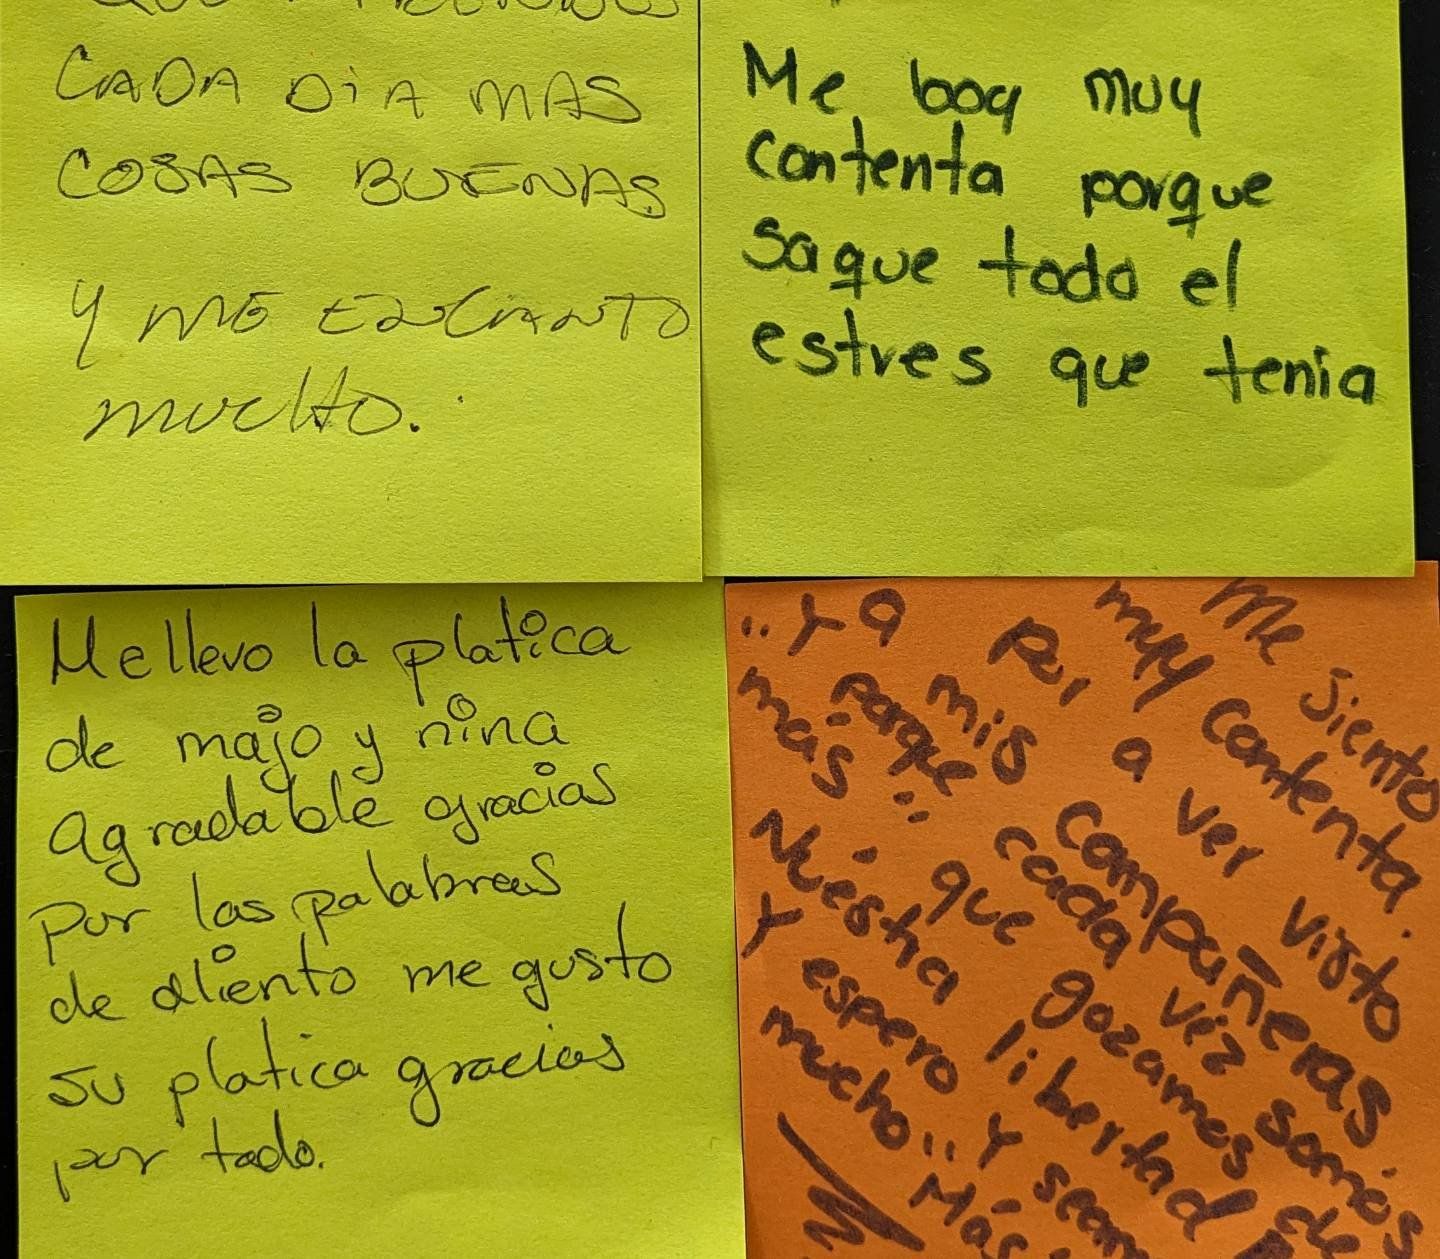 CADA DiA MAS
COSAS BUENAS
Y ME ENCANTO
MUCHO.
Me boy muy
contenta porque
saque todo el
estres que tenia
Me llevo la platica
de majo y nina
agradable gracias
por las palabras
de aliento me gusto
su platica gracias
por todo.
Me siento
muy contenta.
Por a ver visto
..Y a mis compañeras.
porque cada vez somos
más :. que gozamos de
Nuestra libertad
Y espero Y
mucho.. Más